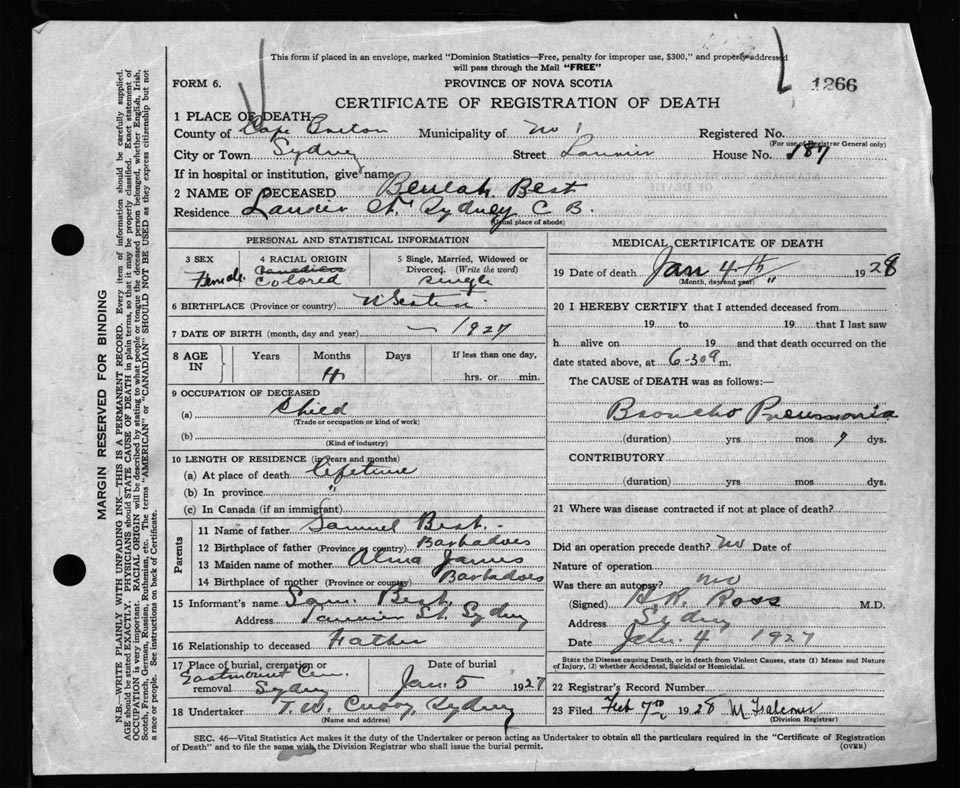 This form if placed in an envelope, marked "Dominion Statistics—Free, penalty for improper use, $300," and properly addressed
will pass through the Mail "FREE"
FORM 6. PROVINCE OF NOVA SCOTIA 1266
CERTIFICATE OF REGISTRATION OF DEATH
1 PLACE OF DEATH
County of Cape Breton Municipality of No 1 Registered No.
(For use of Registrar General only)
City or Town Sydney Street Laurier House No. 187
If in hospital or institution, give name
2 NAME OF DECEASED Beulah Best
Residence Laurier St. Sydney C B.
(Usual place of abode)
PERSONAL AND STATISTICAL INFORMATION
3 SEX 4 RACIAL ORIGIN 5 Single, Married, Widowed or
Divorced. (Write the word)
Female Canadian
Colored single
6 BIRTHPLACE (Province or country) N Scotia
7 DATE OF BIRTH (month, day and year) — 1927
8 AGE IN Years Months Days If less than one day,
4 hrs. or min.
9 OCCUPATION OF DECEASED
(a) Child
(Trade or occupation or kind of work)
(b)
(Kind of industry)
10 LENGTH OF RESIDENCE (in years and months)
(a) At place of death lifetime
(b) In province "
(c) In Canada (if an immigrant)
Parents
11 Name of father Samuel Best.
12 Birthplace of father (Province or country) Barbadoes
13 Maiden name of mother Alma James
14 Birthplace of mother (Province or country) Barbadoes
15 Informant's name Sam. Best.
Address Laurier St. Sydney
16 Relationship to deceased Father
17 Place of burial, cremation or removal Date of burial
Eastmount Cem.
Sydney Jan. 5 1927
18 Undertaker T. W. Curry, Sydney
(Name and address)
MEDICAL CERTIFICATE OF DEATH
19 Date of death Jan 4th " 1928
(Month, day and year)
20 I HEREBY CERTIFY that I attended deceased from
19 to 19 that I last saw
h alive on 19 and that death occurred on the
date stated above, at 6-30 a m.
The CAUSE of DEATH was as follows:—
Broncho Pneumonia
(duration) yrs mos 7 dys.
CONTRIBUTORY
(duration) yrs mos dys.
21 Where was disease contracted if not at place of death?
Did an operation precede death? No Date of
Nature of operation
Was there an autopsy? no
(Signed) Ross M.D.
Address Sydney
Date Jan. 4 1927
State the Disease causing Death, or in death from Violent Causes, state (1) Means and Nature
of Injury, (2) whether Accidental, Suicidal or Homicidal.
22 Registrar's Record Number
23 Filed Feb 7th 1928
(Division Registrar)
SEC. 46—Vital Statistics Act makes it the duty of the Undertaker or person acting as Undertaker to obtain all the particulars required in the "Certificate of Registration
of Death" and to file the same with the Division Registrar who shall issue the burial permit.
(OVER)
MARGIN RESERVED FOR BINDING
N.B—WRITE PLAINLY WITH UNFADING INK—THIS IS A PERMANENT RECORD. Every item of information should be carefully supplied.
AGE should be stated EXACTLY. PHYSICIANS should STATE CAUSE OF DEATH in plain terms, so that it may be properly classified. Exact statement of
OCCUPATION is very important. RACIAL ORIGIN will be described by stating to what people or tongue the deceased person belonged, whether English, Irish,
Scotch, French, German, Russian, Ruthenian, etc. The terms "AMERICAN" or "CANADIAN" SHOULD NOT BE USED as they express citizenship but not
a race or people. See instructions on back of Certificate.